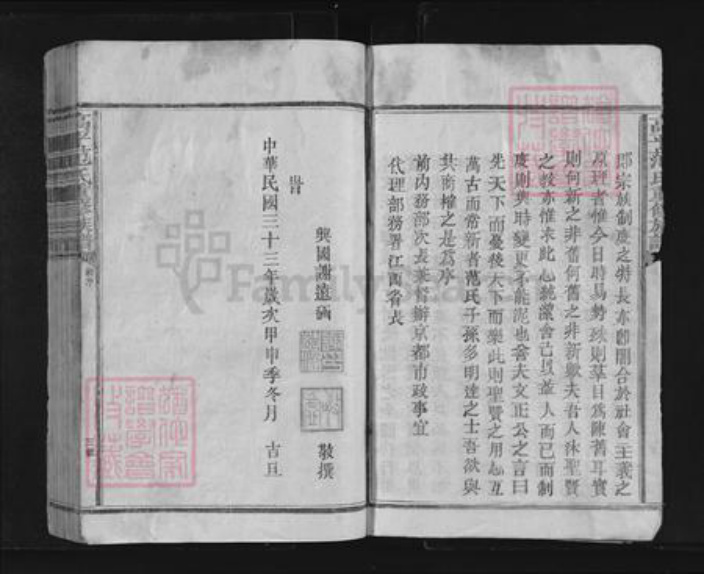 即宗族制度之特長亦即闇合於社會主義之
原理者惟今日時易勢殊則羣目爲陳舊耳實
則何新之非舊何舊之非新歟夫吾人沐聖賢
之教亦惟求此心純潔舍己以益人而已而制
度則與時變更不能泥也昔夫文正公之言曰
先天下而憂後天下而樂此則聖賢之用心亙
萬古而常新者范氏子孫多明達之士吾欲與
共商榷之是爲序
前內務部次長兼督辦京都市政事宜
代理部務署江西省長
興國謝遠涵 敬撰
旹
中華民國三十三年歲次甲申季冬月 吉旦
范氏 族譜
FamilySearch